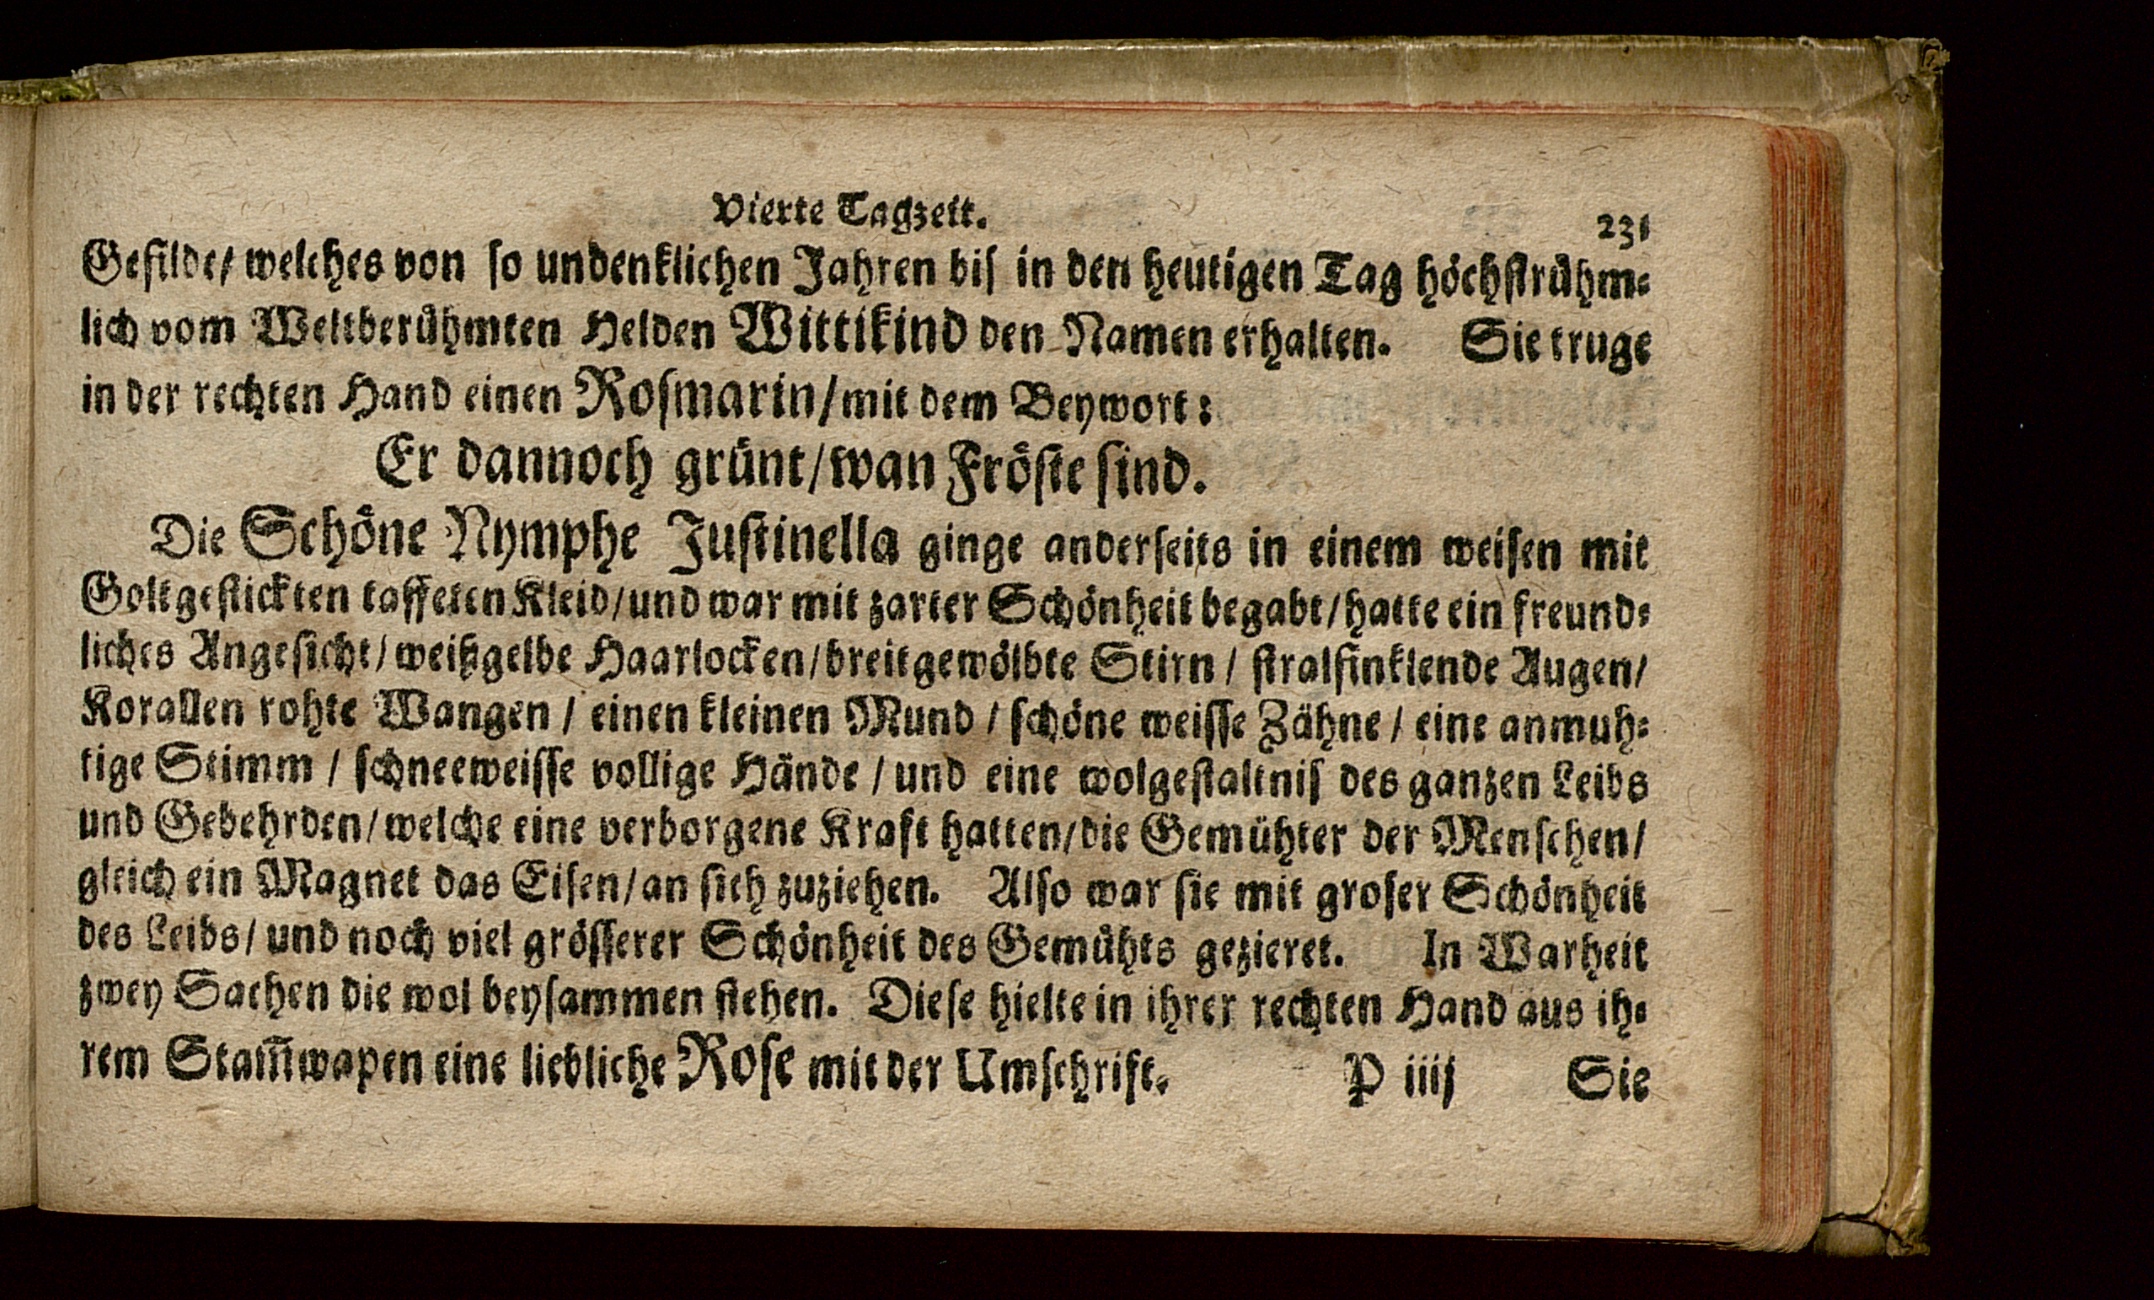 Vierte Tagzeit.
231
Gefilde/ welches von ſo undenklichen Jahren biſ in den heutigen Tag höchſtrühm⸗
lich vom Weltberühmten Helden Wittikind den Namen erhalten. Sie truge
in der rechten Hand einen Roſmarin/ mit dem Beywort:
Er dannoch grünt/ wan Fröſte ſind.
Die Schöne Nymphe Juſtinella ginge anderſeits in einem weiſen mit
Goltgeſtickten taffeten Kleid/ und war mit zarter Schönheit begabt/ hatte ein freund⸗
liches Angeſicht/ weißgelbe Haarlocken/ breitgewölbte Stirn / ſtralfinklende Augen/
Korallen rohte Wangen / einen kleinen Mund / ſchöne weiſſe Zähne / eine anmuh⸗
tige Stimm / ſchneeweiſſe vollige Hände / und eine wolgeſtaltniſ des ganzen Leibs
und Gebehrden/ welche eine verborgene Kraft hatten/ die Gemühter der Menſchen/
gleich ein Magnet das Eiſen/ an ſich zuziehen. Alſo war ſie mit groſer Schönheit
des Leibs/ und noch viel gröſſerer Schönheit des Gemühts gezieret. In Warheit
zwey Sachen die wol beyſammen ſtehen. Dieſe hielte in ihrer rechten Hand aus ih⸗
rem Stam̃wapen eine liebliche Roſe mit der Umſchrift.
P iiij
Sie